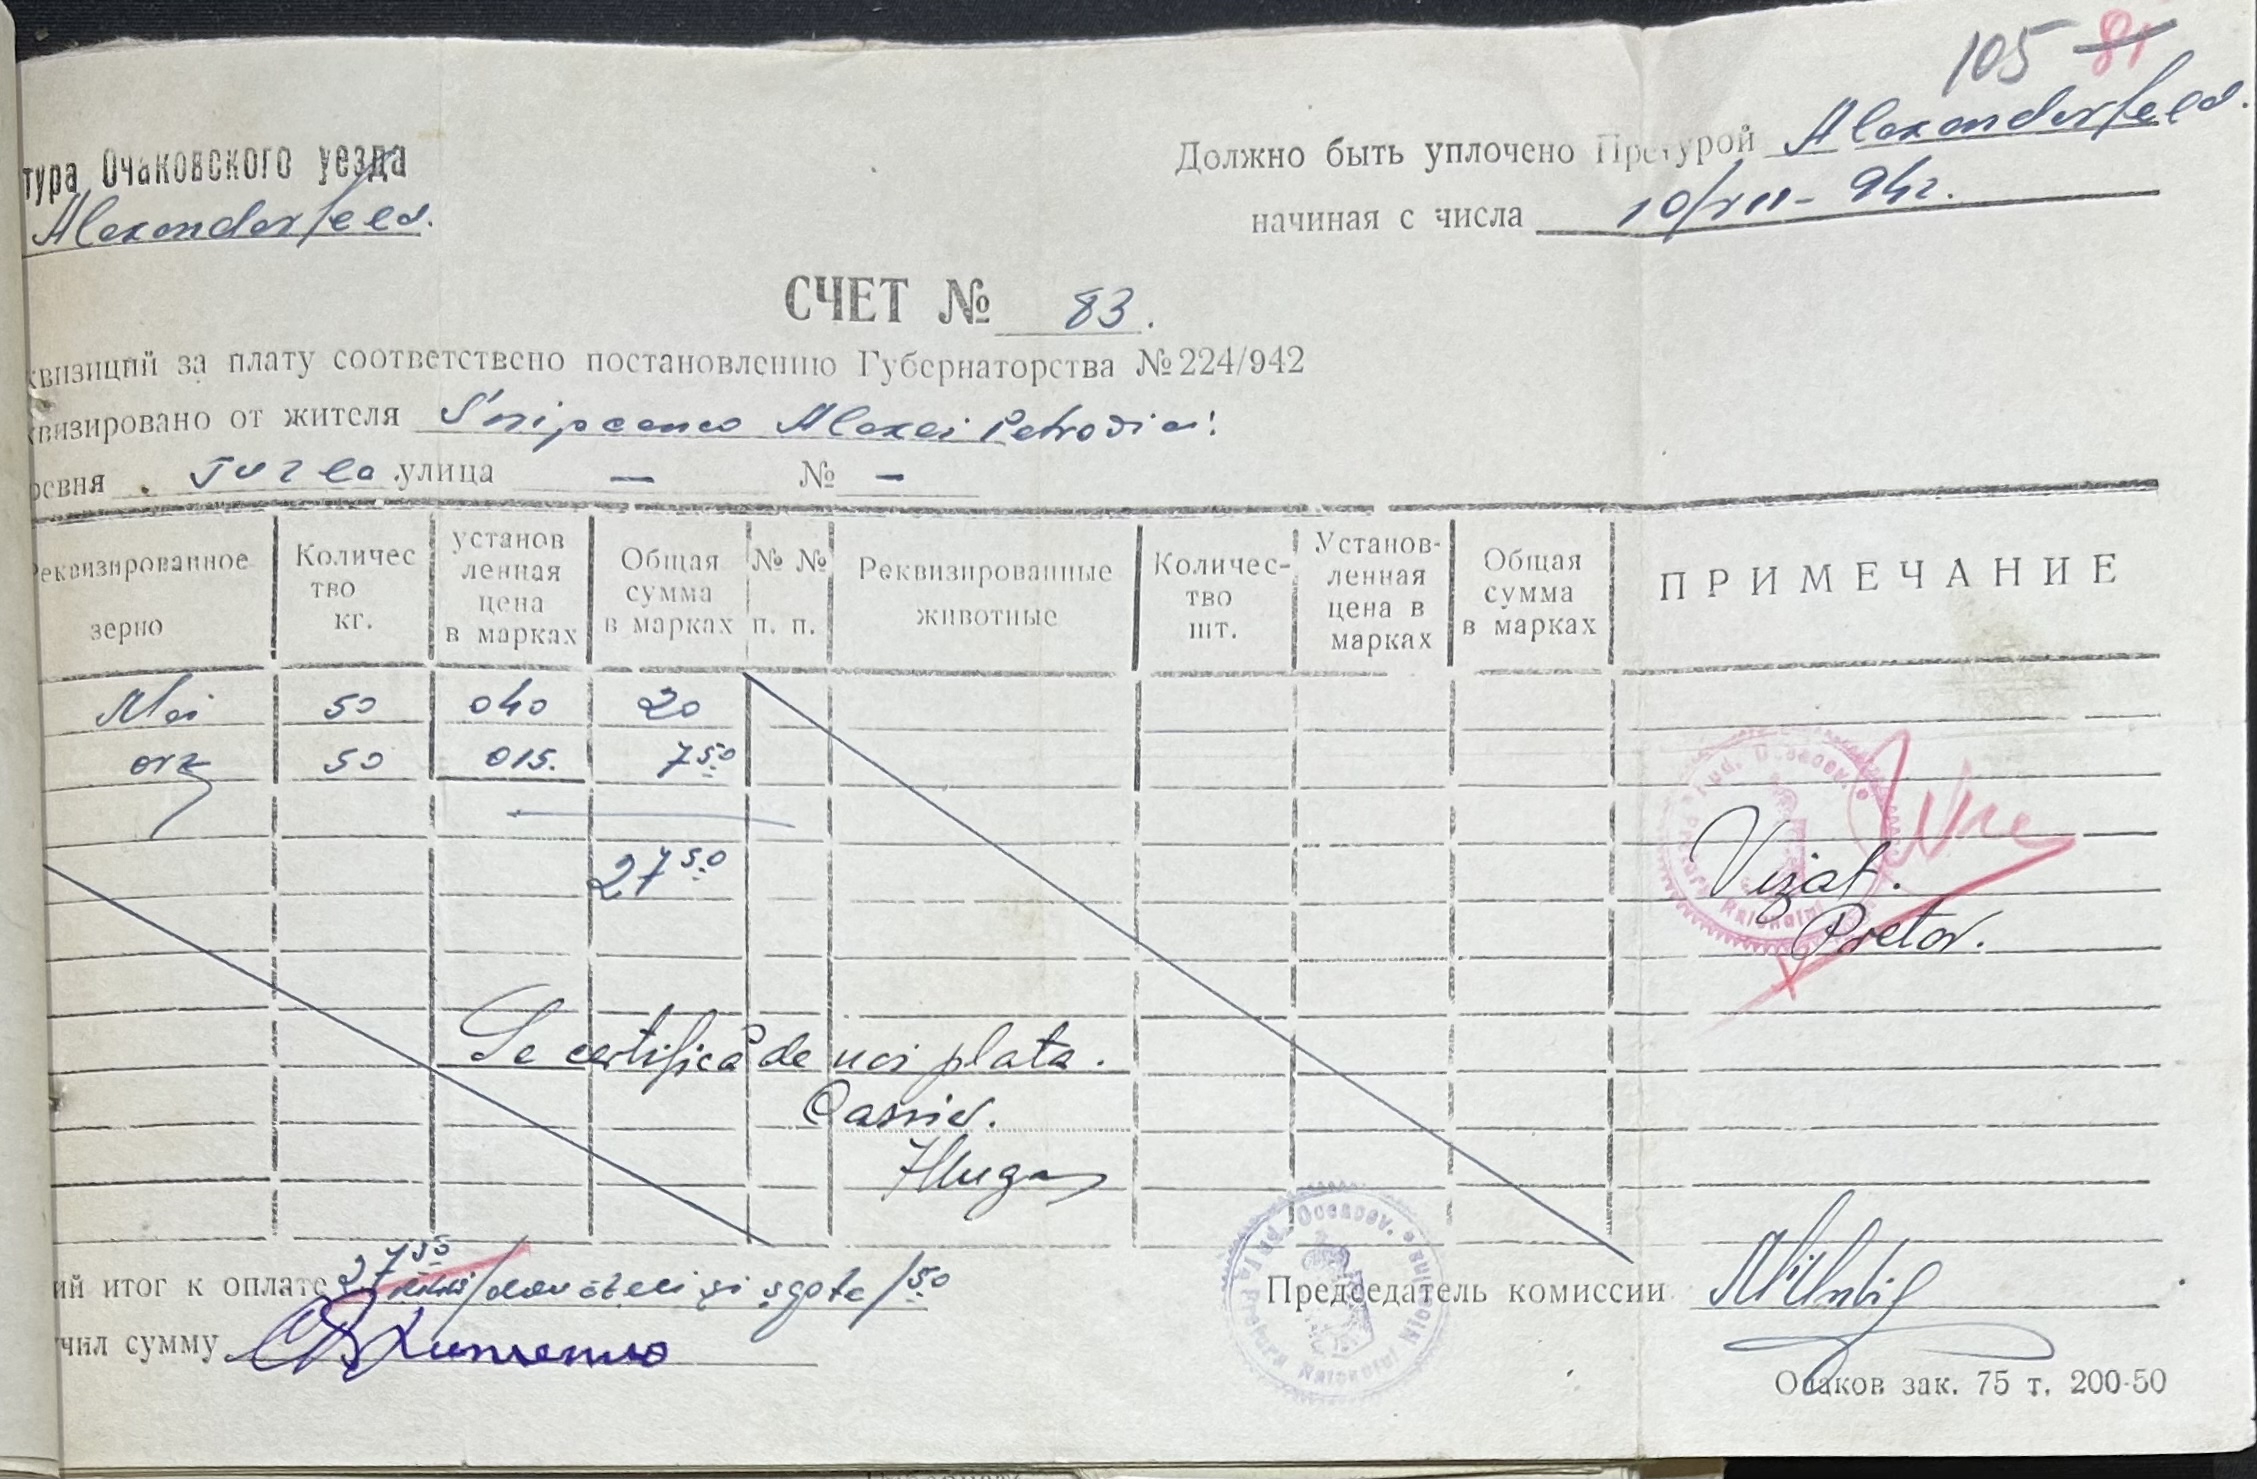 105 81
тура Очаковского уезда
Alexanderfeld.
Должно быть уплочено Претурой Alexanderfeld.
начиная с числа 10/VII - 942.
СЧЕТ № 83.
квизиций за плату соответствено постановлению Губернаторства № 224/942
квизировано от жителя Alexei
ревня Tuzla улица — № —
Реквизированное зерно
Количес тво кг.
установ ленная цена в марках
Общая сумма в марках
№ № п. п.
Реквизированные животные
Количес- тво шт.
Установ- ленная цена в марках
Общая сумма в марках
ПРИМЕЧАНИЕ
Mei 50 040 20
orz 50 015. 7 50
27 50
Vizat.
Pretor.
Se certifică de noi plata.
Casier.
ий итог к оплате 27 50 /douăzeci și șapte/50
Председатель комиссии
чил сумму
Очаков зак. 75 т. 200-50